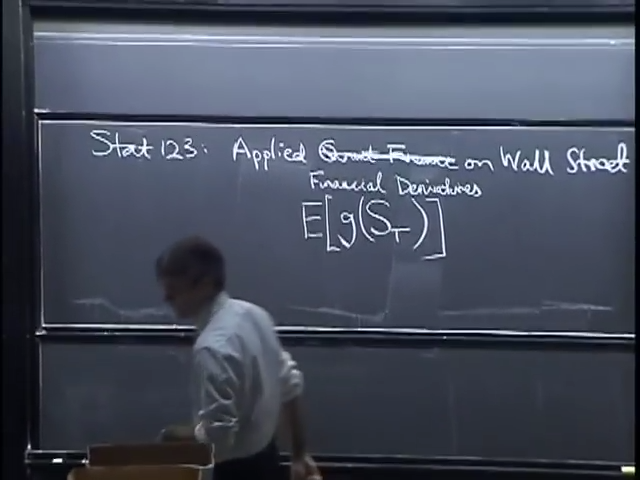 Stat 123: Applied Quant Finance on Wall Street
Financial Derivatives
E[g(S_T)]